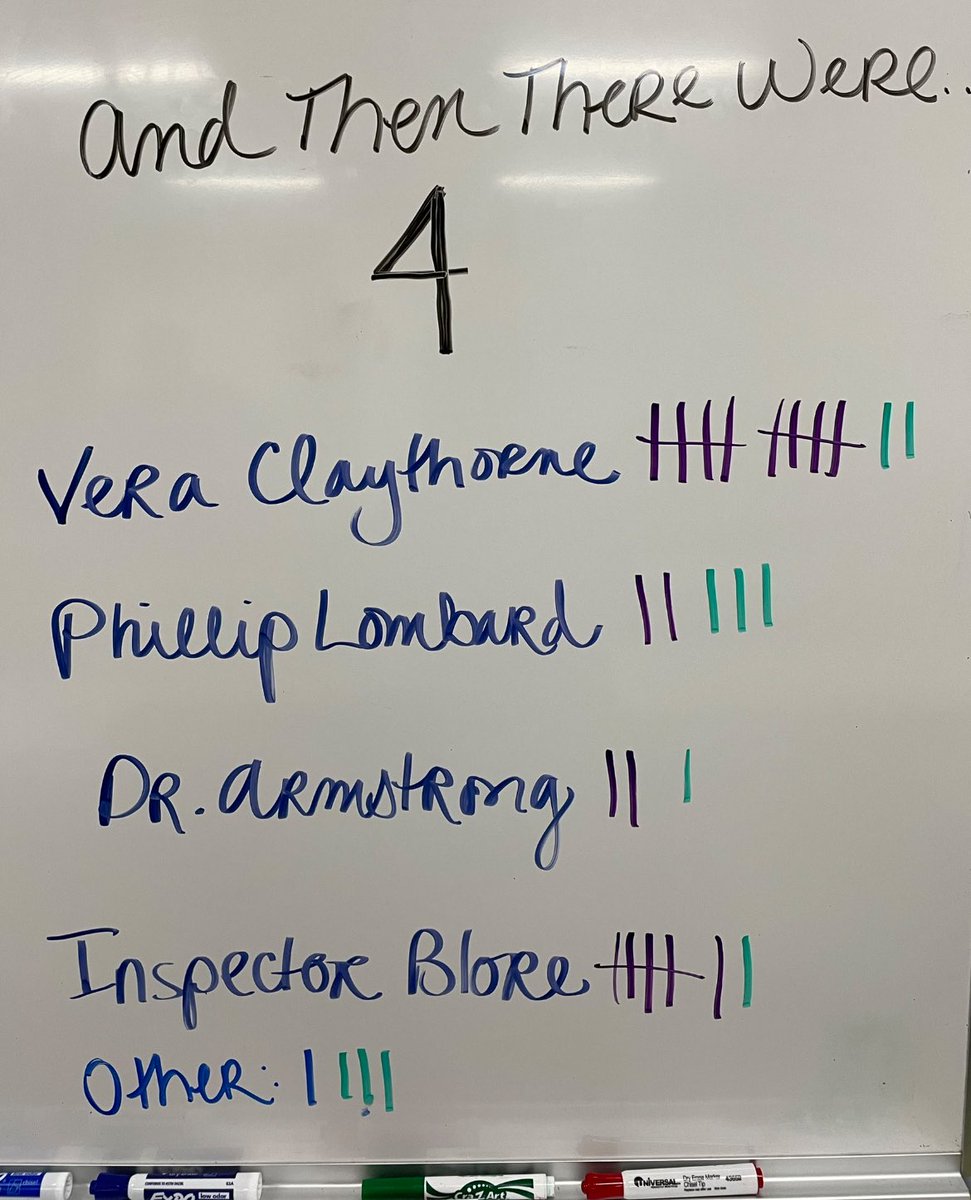 And Then There Were..
4
Vera Claythorne
Phillip Lombard
Dr. Armstrong
Inspector Blore
Other:
EXPO low odor
Cra-Z-Art
UNIVERSAL Dry Erase Marker
Chisel Tip